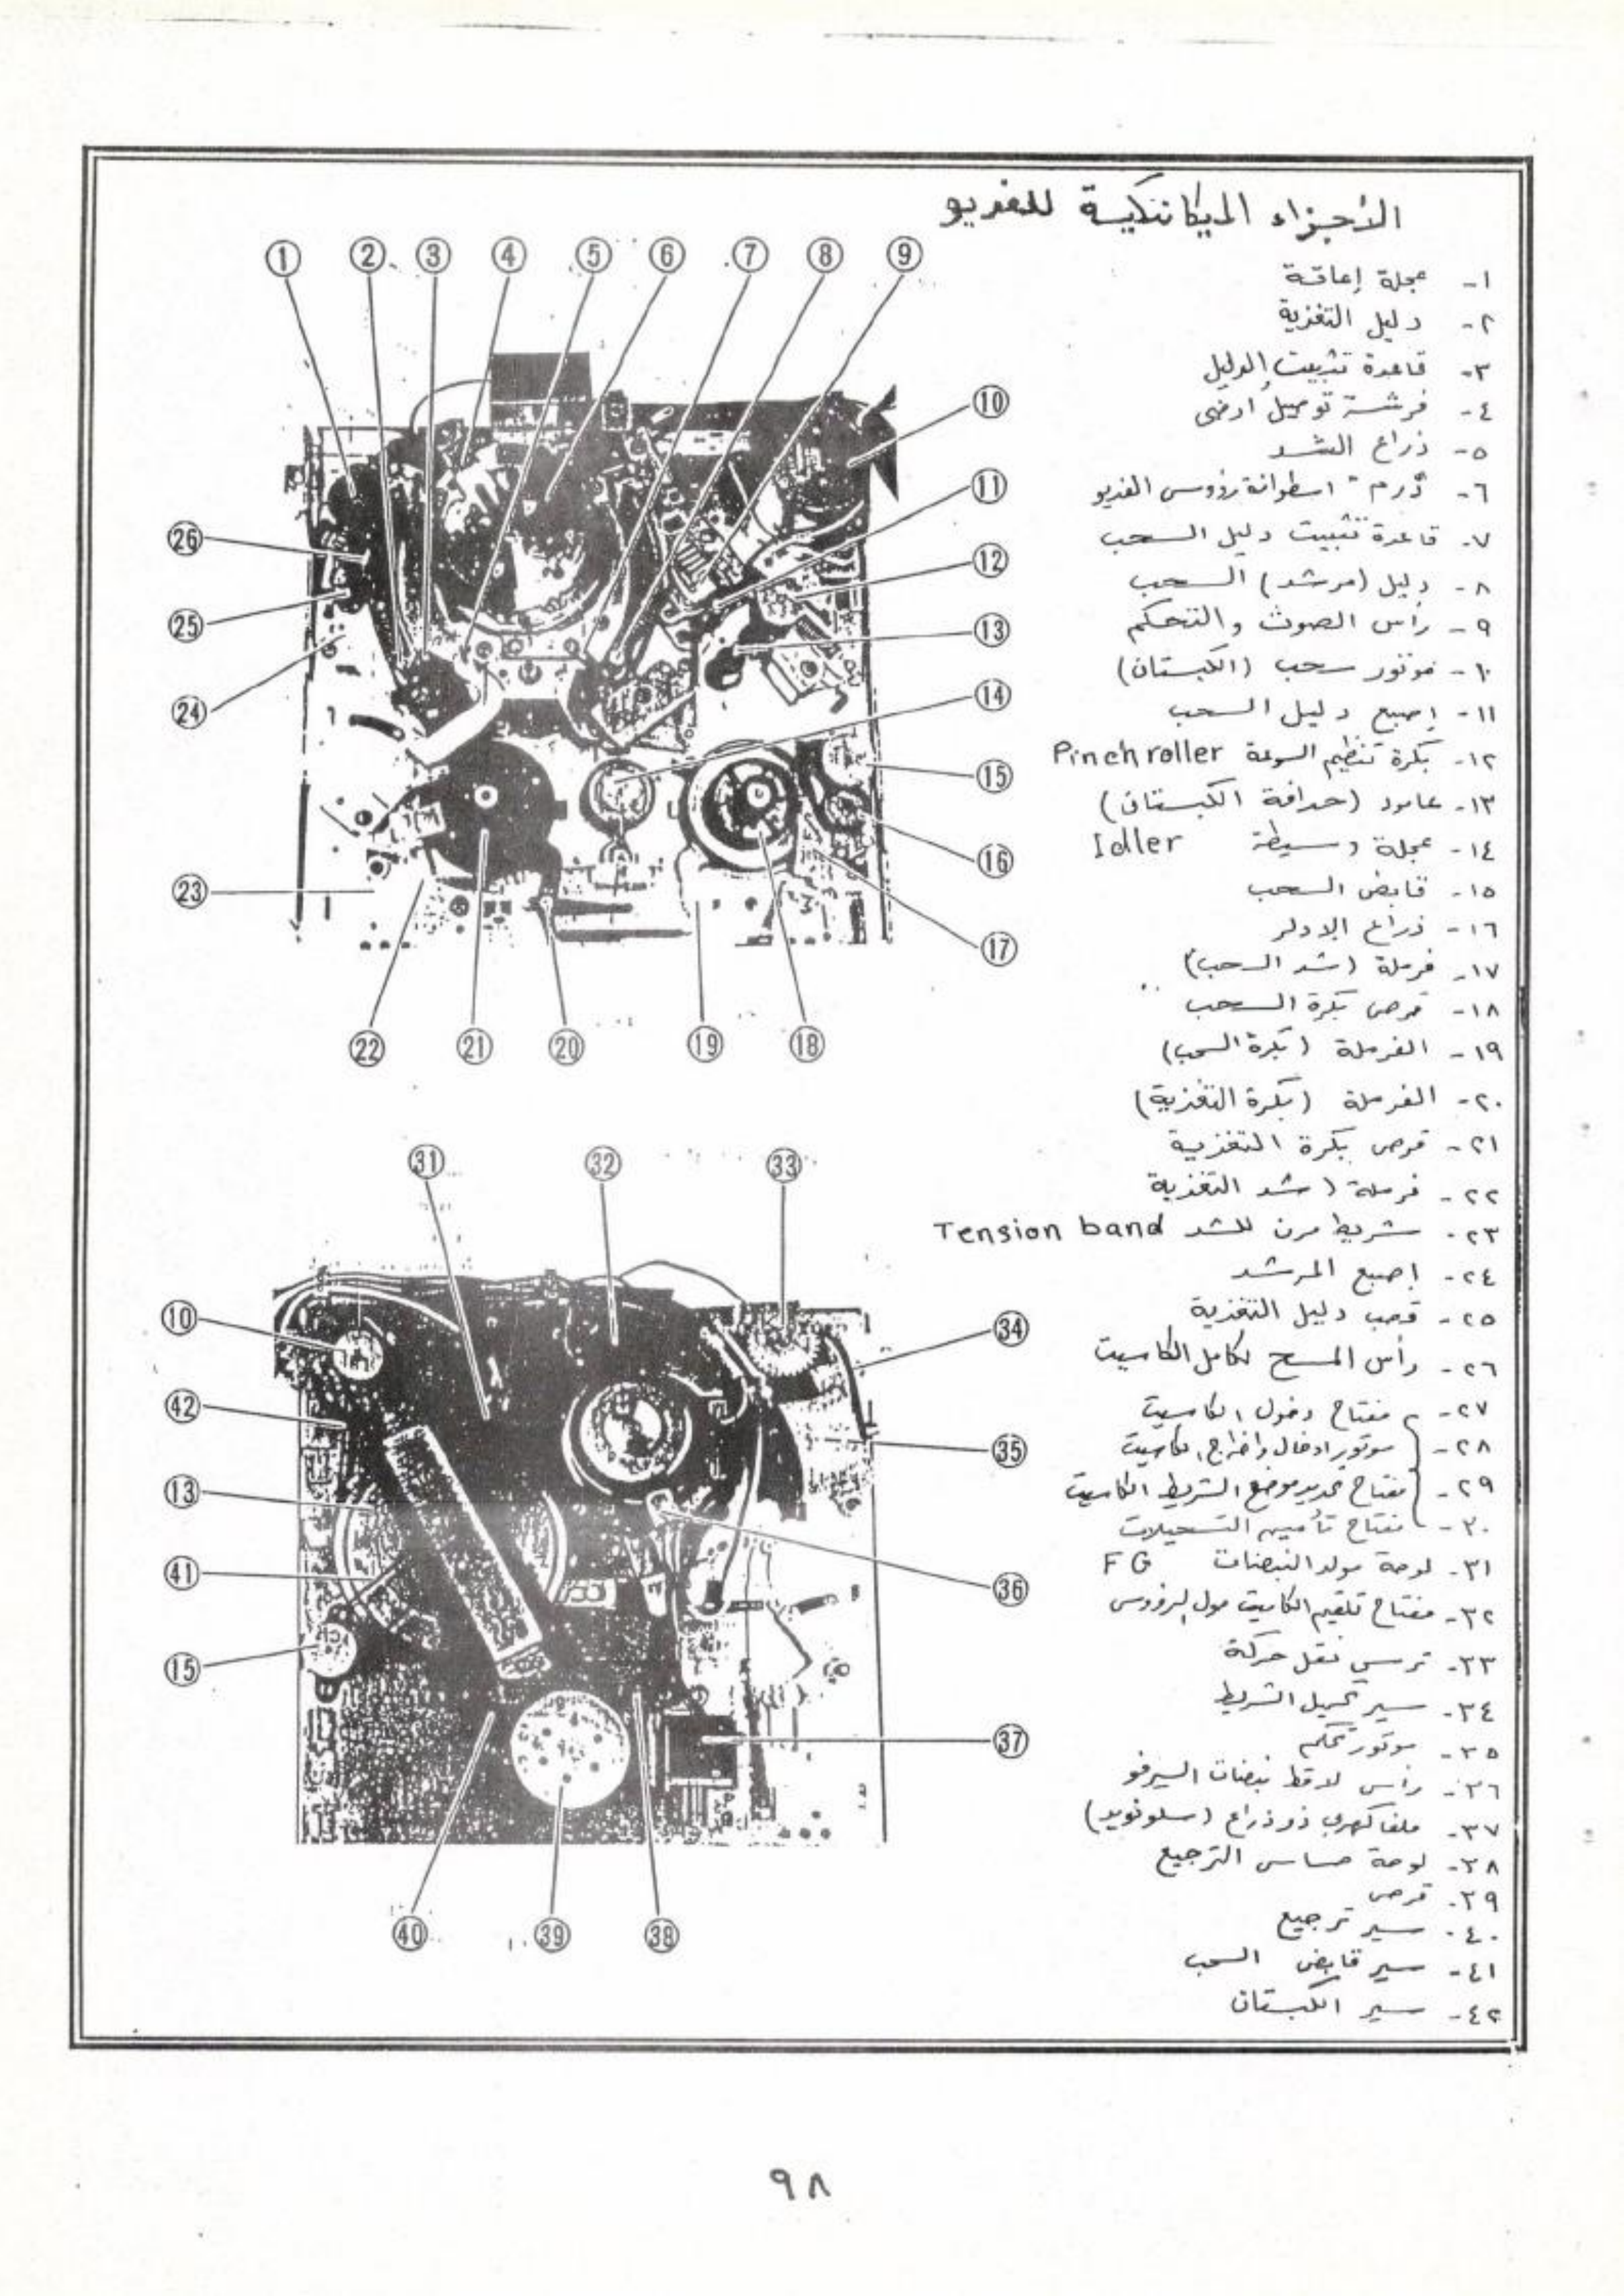 الأجزاء الميكانيكية للفديو
١- عجلة إعاقة
٢- دليل التغذية
٣- قاعدة تثبيت الدليل
٤- فرشة توصيل أرضى
٥- ذراع الشد
٦- درم " اسطوانة رؤوس الفديو
٧- قاعدة تثبيت دليل السحب
٨- دليل (مرشد) السحب
٩- رأس الصوت والتحكم
١٠- موتور سحب (الكبستان)
١١- إصبع دليل السحب
١٢- بكرة تنظيم السرعة Pinch roller
١٣- عامود (حدافة الكبستان)
١٤- عجلة وسيطة Idler
١٥- قابض السحب
١٦- ذراع الادلر
١٧- فرملة (شد السحب)
١٨- قرص بكرة السحب
١٩- الفرملة (بكرة السحب)
٢٠- الفرملة (بكرة التغذية)
٢١- قرص بكرة التغذية
٢٢- فرملة ( شد التغذية
٢٣- شريط مرن للشد Tension band
٢٤- إصبع المرشد
٢٥- قصب دليل التغذية
٢٦- رأس المسح لكامل الكاسيت
٢٧- مفتاح دخول الكاسيت
٢٨- موتور ادخال واخراج الكاسيت
٢٩- مفتاح تحديد موضع الشريط الكاسيت
٣٠- مفتاح تأمين التسجيلات
٣١- لوحة مولد النبضات FG
٣٢- مفتاح تلقيم الكاسيت حول الرؤوس
٣٣- ترس نقل حركة
٣٤- سير تحميل الشريط
٣٥- موتور تحكم
٣٦- رأس لاقط نبضات السيرفو
٣٧- ملف كهربى ذو ذراع (سلونويد)
٣٨- لوحة حساس الترجيع
٣٩- قرص
٤٠- سير ترجيع
٤١- سير قابض السحب
٤٢- سير الكبستان
1 2 3 4 5 6 7 8 9
10
11
12
13
14
15
16
17
18
19
20
21
22
23
24
25
26
31 32 33
34
35
36
37
38
39
40
10
42
13
41
15
٩٨